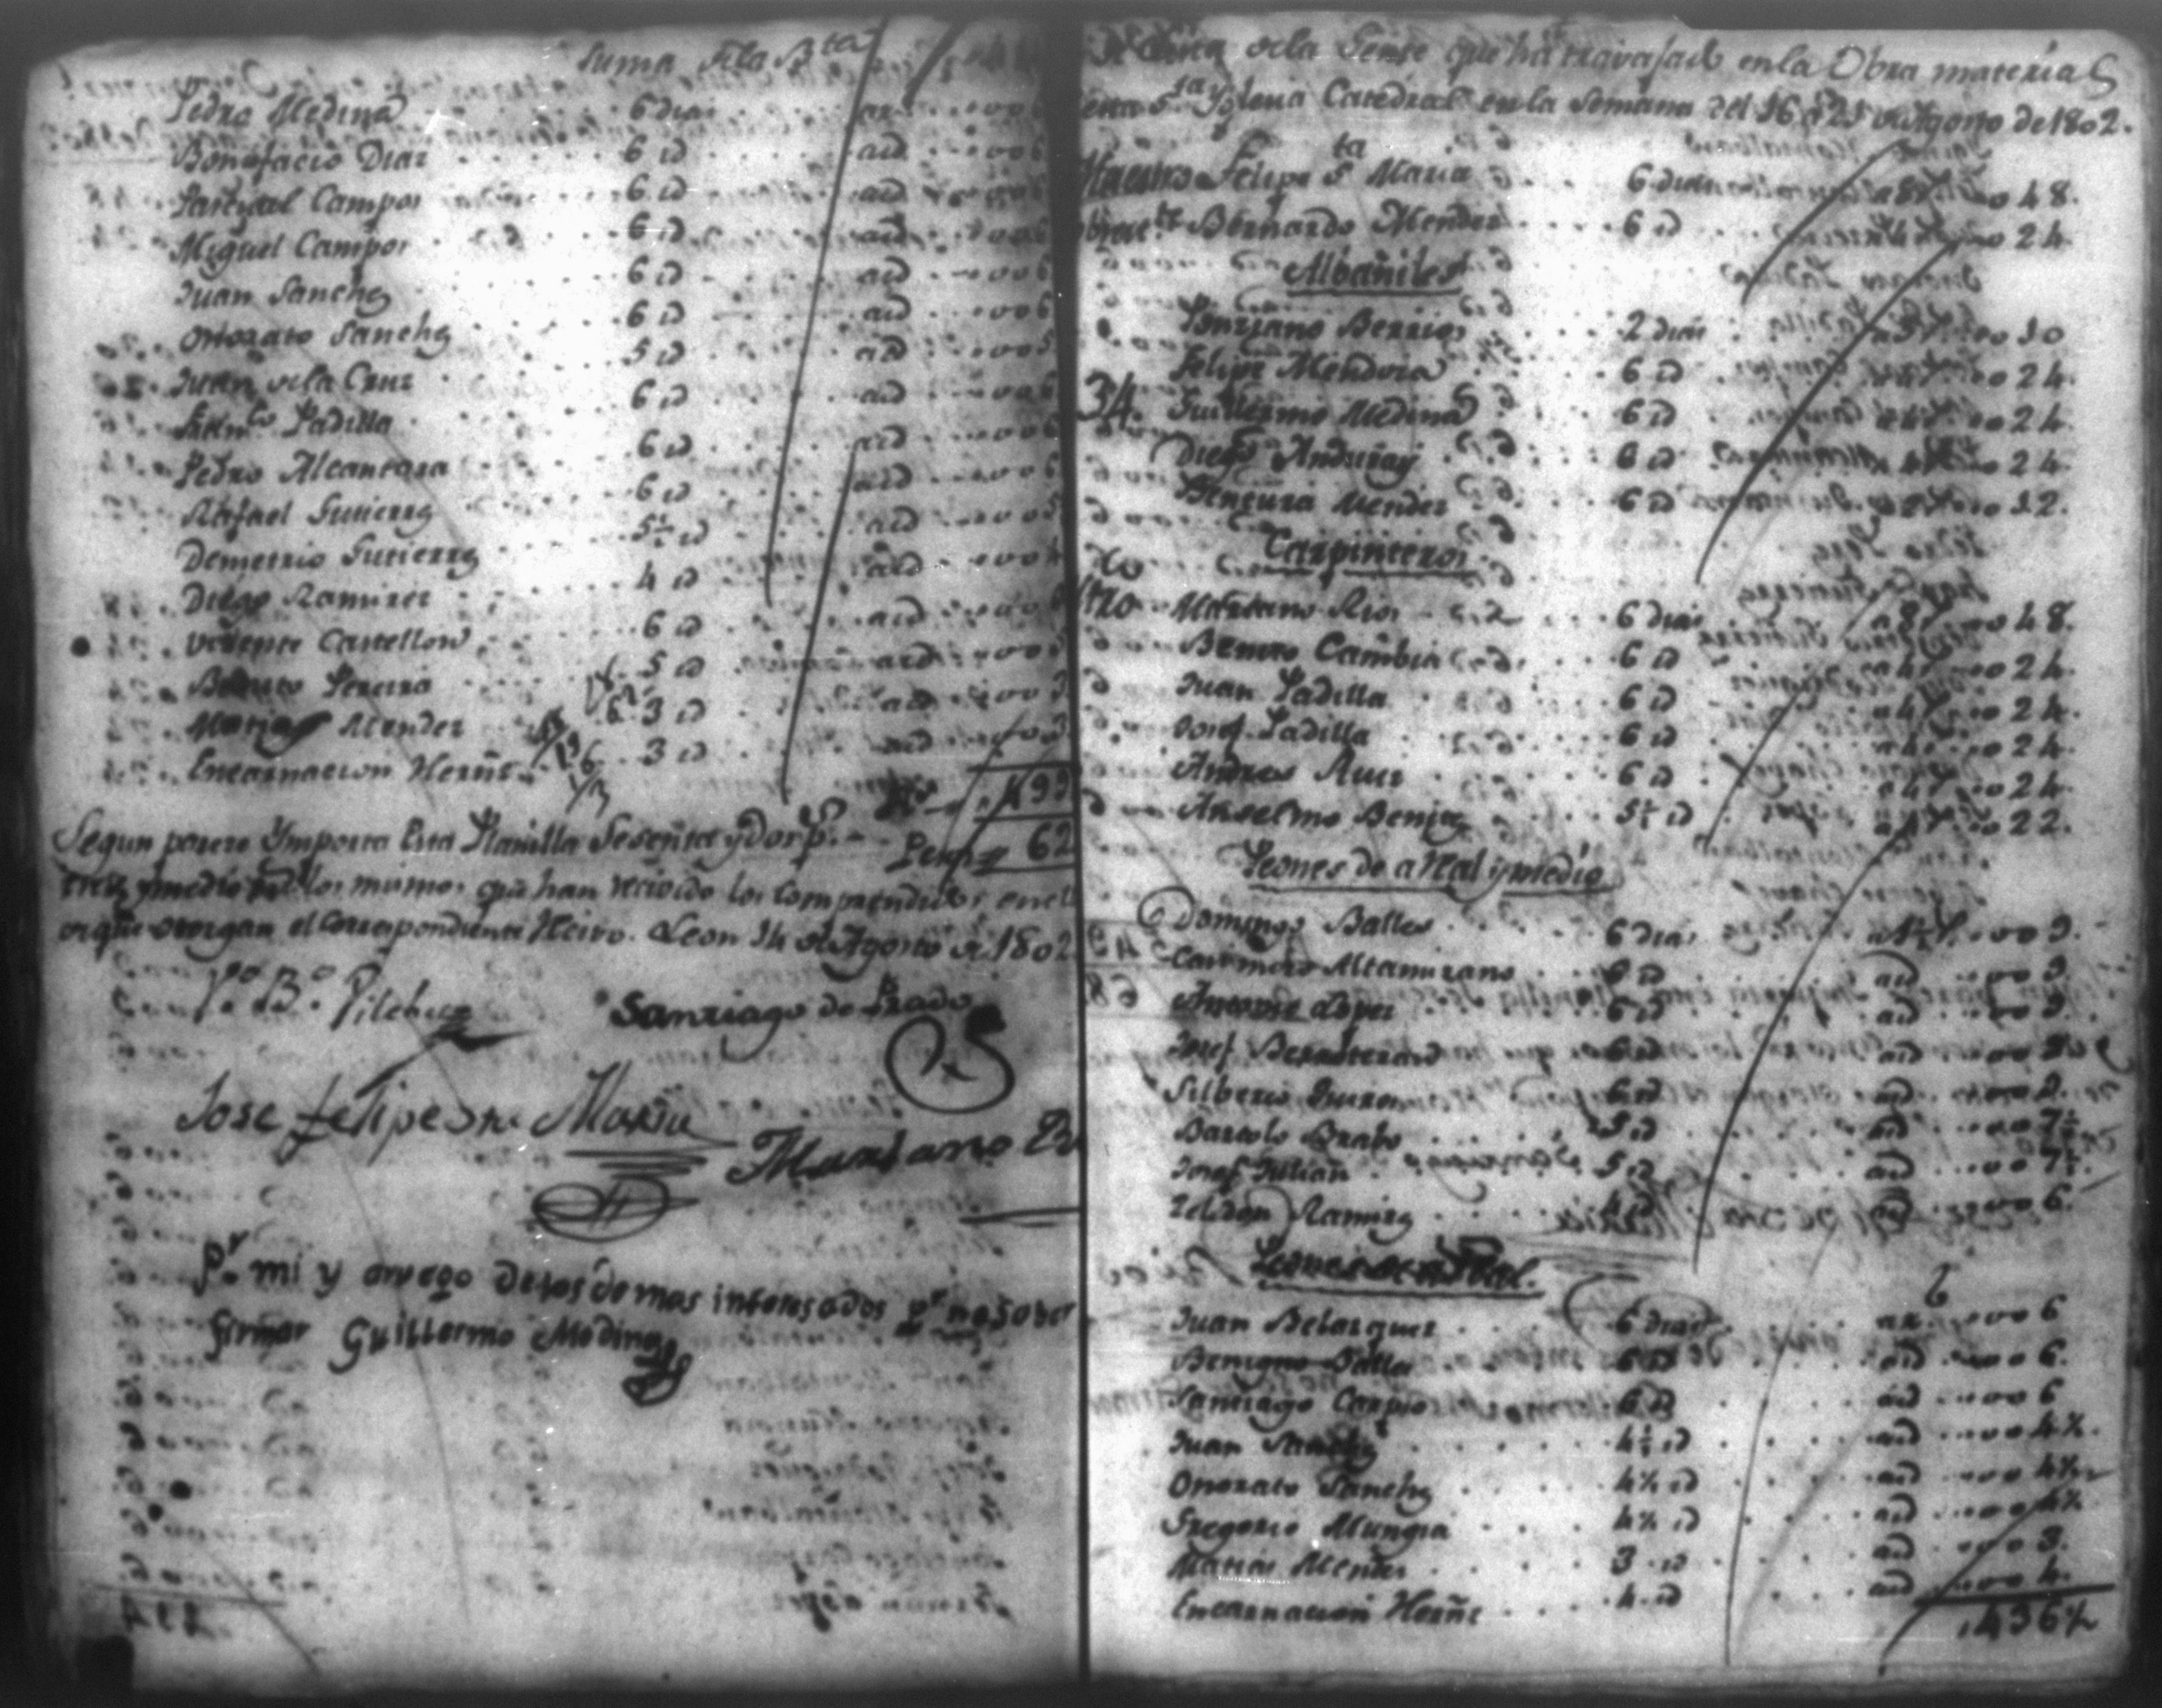 Suma de la B.ta
Pedro Medina 6 dias ar. 006
Bonifacio Diaz 6 id aid 006
Pasqual Campos 6 id aid 006
Miguel Campos 6 id aid 006
Juan Sanchz 6 id aid 006
Onorato Sanchz 6 id aid 006
Juan de la Cruz 5 id aid 005
Fran.co Padilla 6 id aid 006
Pedro Alcantara 6 id aid 006
Rafael Gutierrz 6 id aid 006
Demetrio Gutierrz 5½ id aid 005
Diego Ramirez 4 id aid 004
Vicente Castellon 6 id aid 006
Benito Pereira 5 id aid 00
Matias Mendez 3 id aid 003
Encarnacion Hernz 3 id aid 003
499
Segun parece Ymporta Esta Planilla Sesenta y dos p.s
62
tres y medio los mismos que han recivido los Comprendidos en
que otorgan el Correspondiente Recivo. Leon 14 de Agosto de 1802
V.o B.o Vilchez
Santiago de Prado
Jose Felipe Sta Maria
Mariano
P.r mi y arruego de los demas interesados p.r no saber
firmar Guillermo Medina
de la Gente que ha travajado en la Obra material
S.ta Yglecia Catedral en la Semana del 16 a 21 de Agosto de 1802.
Maestro Felipe S.ta Maria 6 dias a 8 048.
Bernardo Mendez 6 id a 4 024.
Albañiles
Ponziano Berrios 2 dias a 5 010
Felipe Mendoza 6 id a 4 024.
34. Guillermo Medina 6 id a 4 024.
Diego Anduñay 6 id a 4 024.
Bentura Mendez 6 id a 2 012.
Carpinteros
Mro Mariano Rios 6 dias a 8 048.
Benito Cambia 6 id a 4 024.
Juan Padilla 6 id a 4 024.
Josef Padilla 6 id a 4 024.
Andres Ruiz 6 id a 4 024.
Anselmo Benitz 5½ id a 4 022.
Peones de a Real y medio
Domingo Balles 6 dias a 1½ 009.
Casimiro Altamirano 6 id aid 009
Antonio Lopez 6 id aid 009.
Josef 6 id aid 009
Silberio 6 id aid 009.
Bartolo Brabo 5 id aid 007½
Josef Julian 5 id aid 007½
Zeledon Ramirz 4 id aid 006.
Peones de a Real.
Juan Belazquez 6 dias ar. 006
Benigno Balle 6 id aid 006.
Santiago Carpio 6 id aid 006
Juan Sanchz 4½ id aid 004½.
Onorato Sanchz 4½ id aid 004½
Gregorio Mungia 4½ id aid 004½
Matias Mendez 3 id aid 003.
Encarnacion Hernz 4 id aid 004.
436½